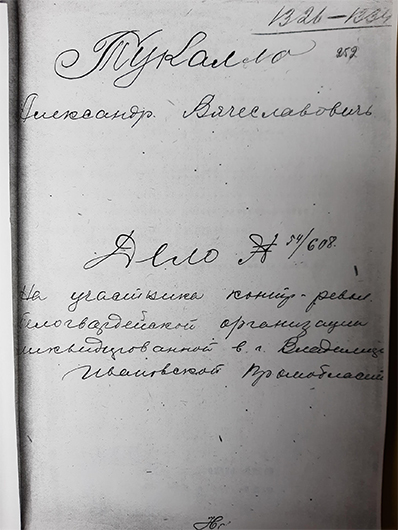 1326-1334
Тукалло
252
Александр Вячеславовичъ
Дело № 54/608.
На участника контр-револ.
белогвардейской организации
ликвидированной в г. Владимире
Ивановской Промобласти